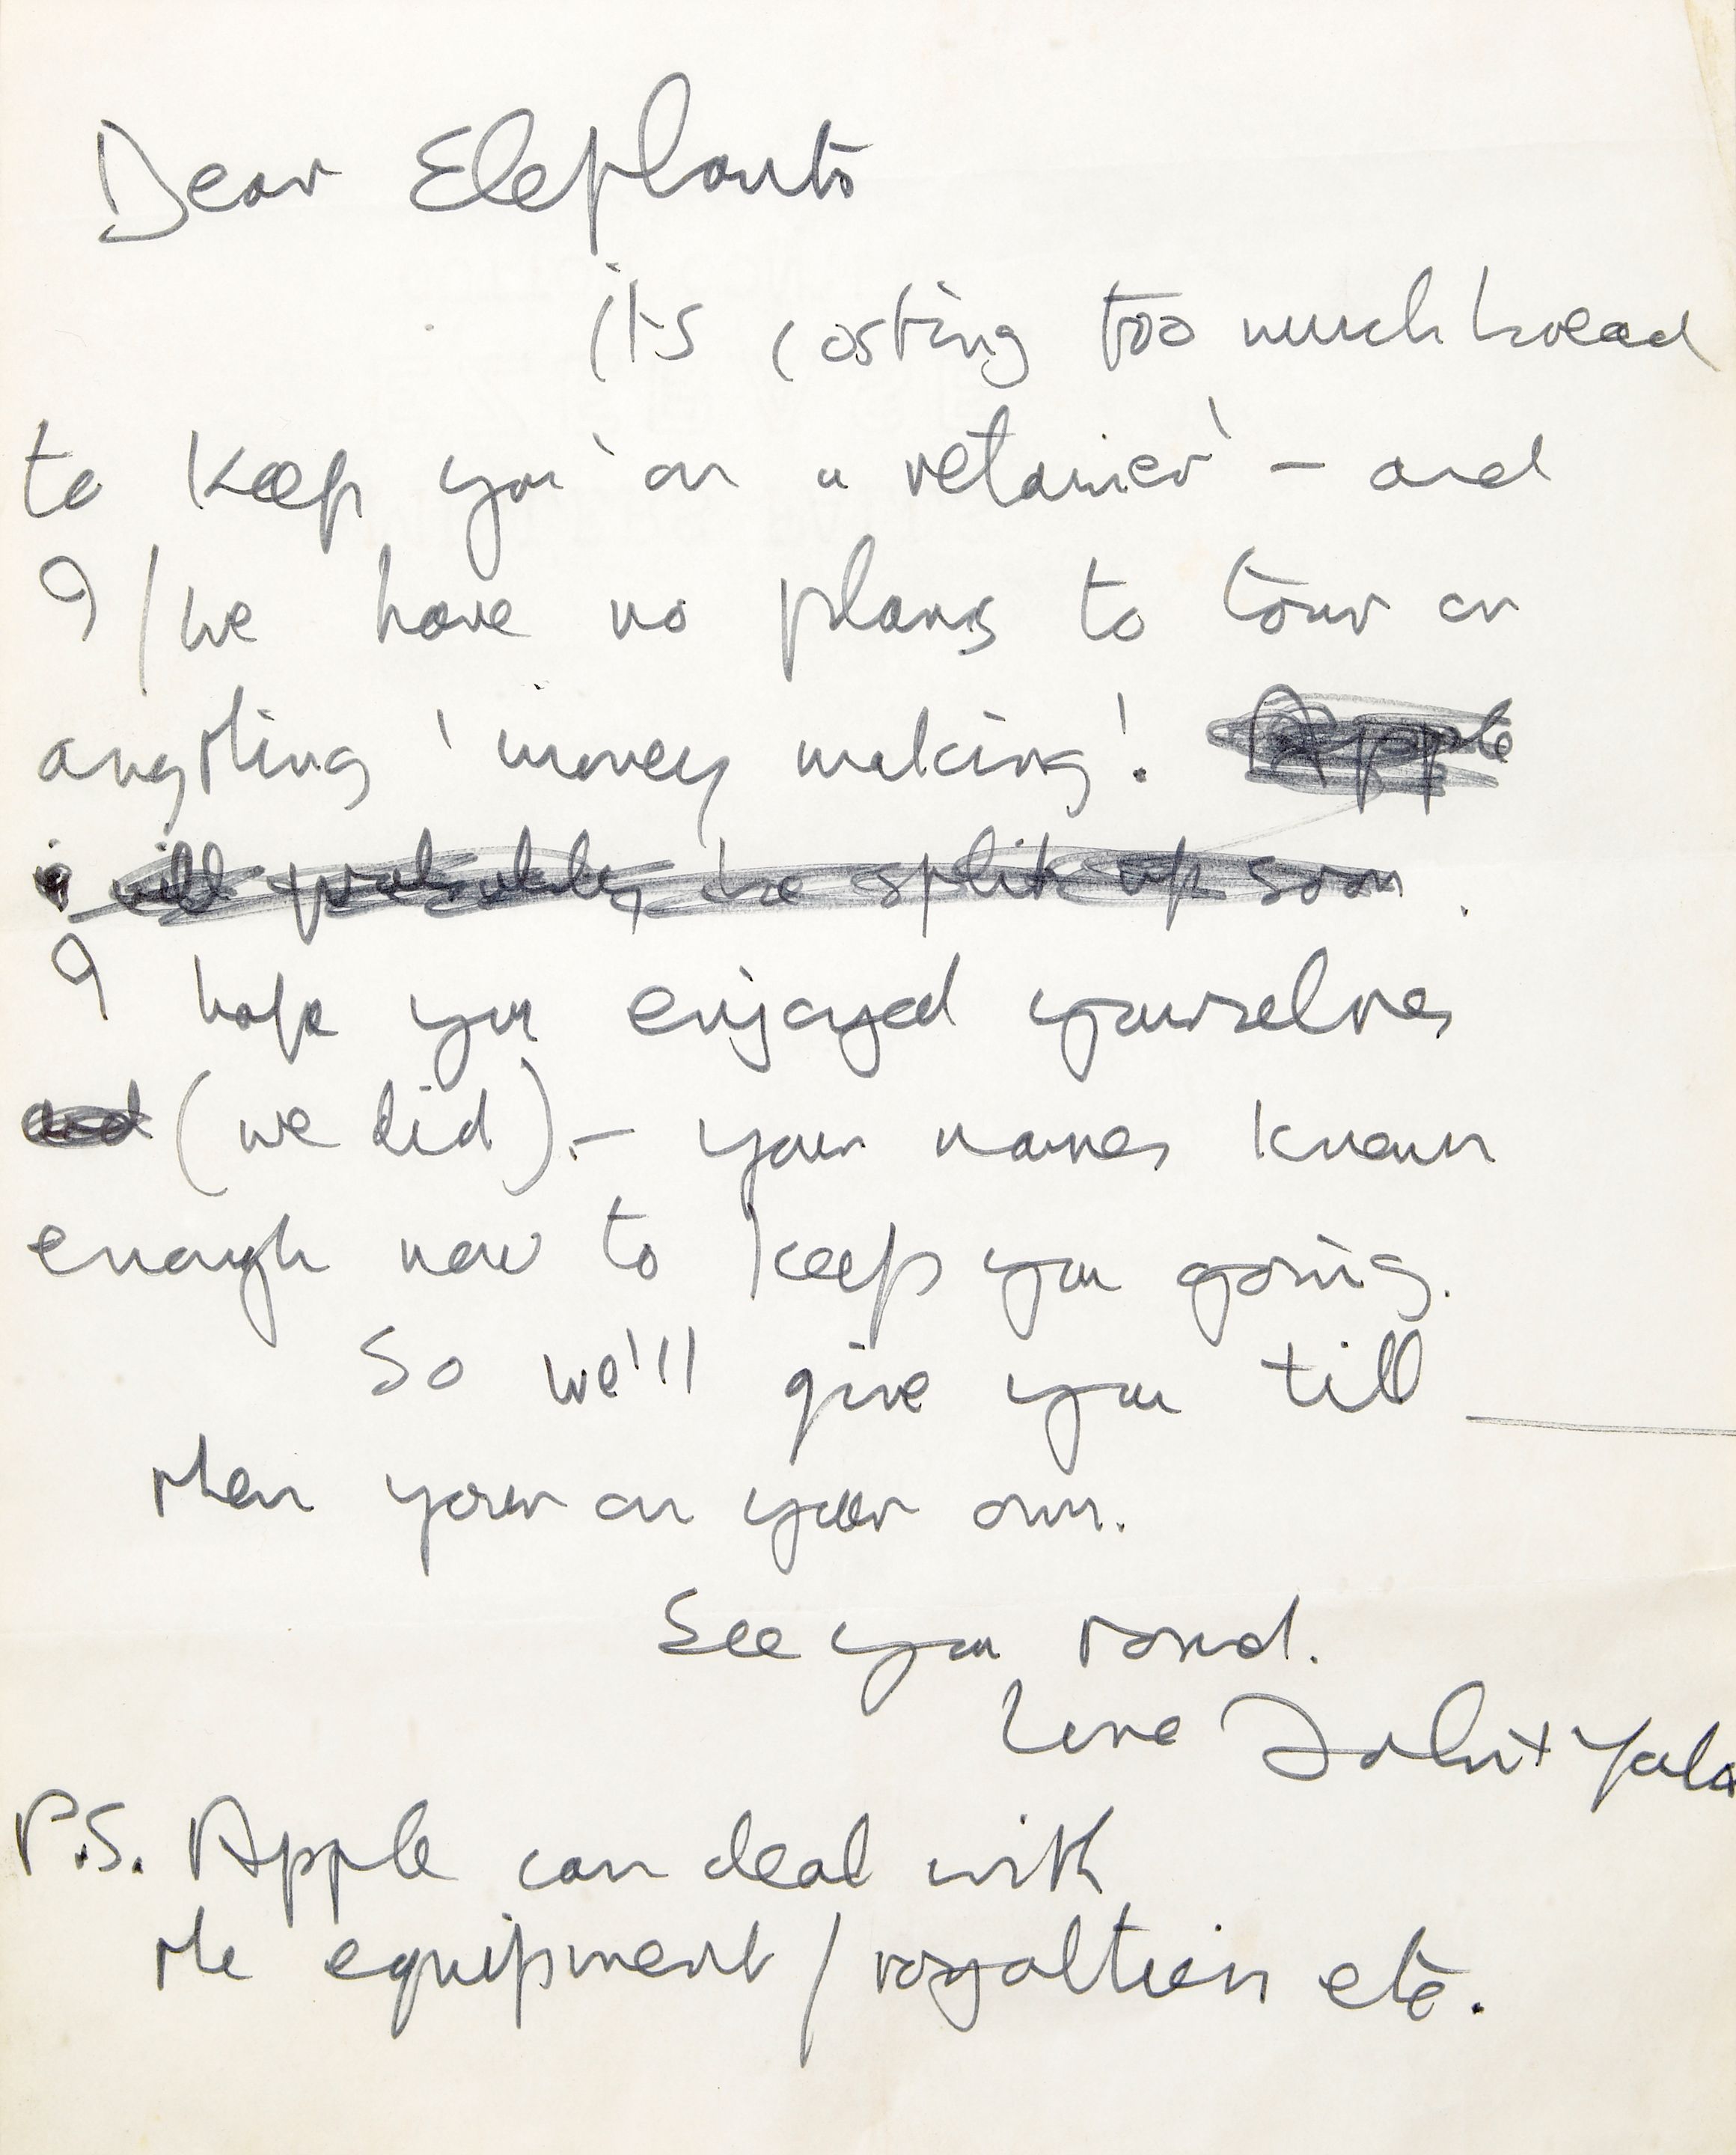 Dear Elephants
its costing too much bread
to keep you 'on a retainer' – and
I/we have no plans to tour or
anything 'money making'. Apple
will probably be split up soon.
I hope you enjoyed yourselves
and (we did). – your names known
enough now to keep you going.
So we'll give you till ____
then your on your own.
See you round.
love John + Yoko
P.S. Apple can deal with
the equipment / royalties etc.